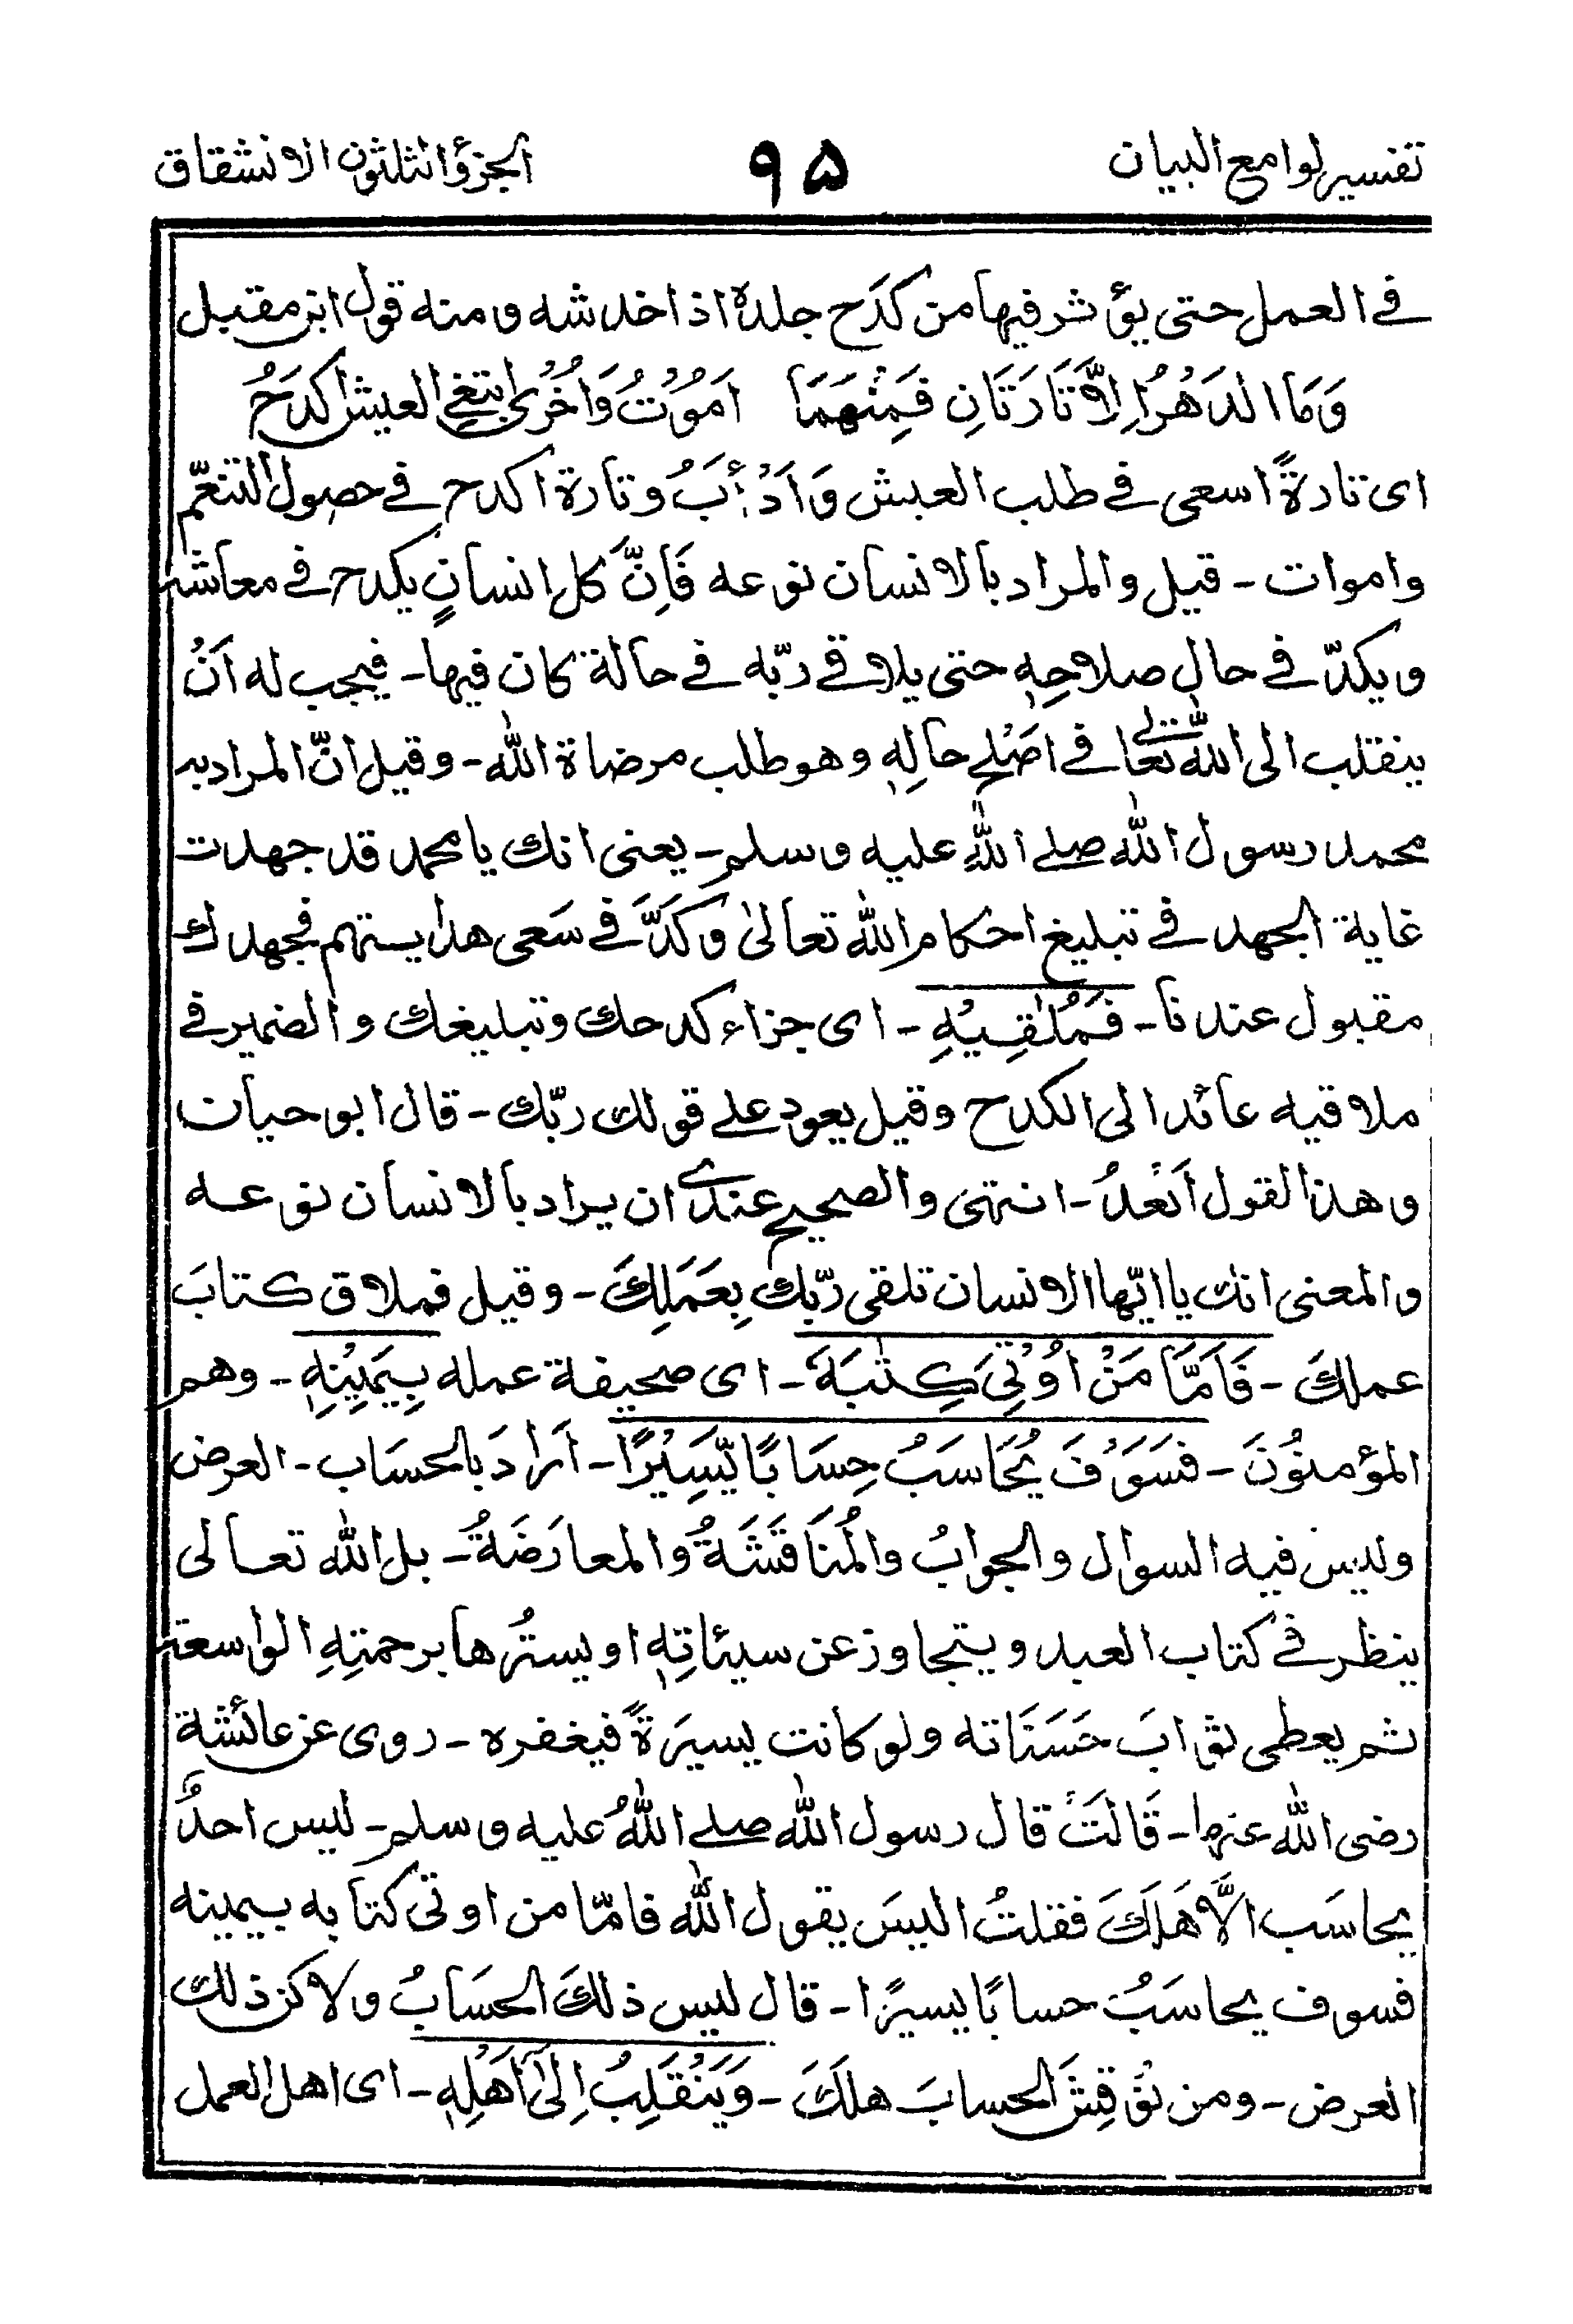 تفسير لوامع البيان ۹۵ الجزؤ الثلثون الانشقاق
فى العمل حتى يؤثر فيها من كدَح جلدهٗ اذا خدشه ومنه قول ابن مقبل
وَمَا الدَهْرُ اِلَّا تَارَتَانِ فَمِنْهُمَا اَمُوْتُ وَاُخْرٰى ابتغي العيش اكدَحُ
اى تارةً اسعى فى طلب العيش وَاَدْأبَ وتارة اكدح فى حصول التنعّم
واموات - قيل والمراد بالانسان نوعه فَاِنَّ كل انسانٍ يكدح فى معاشه
ويكدّ فى حال صلاحِهٖ حتى يلاقى ربّه فى حالة كان فيها - فيجب له اَنْ
ينقلب الى الله تعالى فى اَصْلح حالِهٖ وهو طلب مرضاة الله - وقيل انّ المراد به
محمد رسول الله صلے الله عليه وسلم - يعنى انك يا محمد قد جهدت
غاية الجهد فى تبليغ احكام الله تعالىٰ وَكَدَّ فى سَعى هدايتهم فجهدك
مقبول عندنا - فَمُلٰقِيْهِ - اى جزاء كدحك وتبليغك والضمير فى
ملاقيه عائد الى الكدح وقيل يعود على قولك ربّك - قال ابو حيان
وهذا القول اَبْعدُ - انتهى والصحيح عندى ان يراد بالانسان نوعه
والمعنى انك يا ايّها الانسان تلقى ربّك بِعَمَلِكَ - وقيل فملاق كتابَ
عملكَ - فَاَمَّا مَنْ اُوْتِيَ كِتٰبَهٗ - اى صحيفة عمله بِيَمِيْنِهٖ - وهم
المؤمنُوْنَ - فَسَوْفَ يُحَاسَبُ حِسَابًا يَّسِيْرًا - اَرادَ بالحسَاب - العرض
وليس فيه السوال والجوابُ والمُنَاقَشَةُ والمعارَضَةُ - بل الله تعالى
ينظر فى كتاب العبد ويتجاوز عن سيئاتِهٖ او يسترُها برحمتِهِ الواسعة
ثم يعطى ثوابَ حَسَنَاته ولو كانت يسيرَةً فيغفره - روى عن عائشة
رضى الله عنها - قَالَتْ قال رسول الله صلے اللهُ عليه وسلم - ليس احدٌ
يحاسَب الَّا هَلَكَ فقلتُ اليسَ يقول الله فامّا من اوتى كتابه بيمينه
فسوف يحاسَبُ حسابًا يسيرًا - قال ليس ذلكَ الحسَابُ ولاكن ذلك
العرض - ومن نُوْقِشَ الحسابَ هلكَ - وَيَنْقَلِبُ اِلٰى اَهْلِهٖ - اى اهل العمل